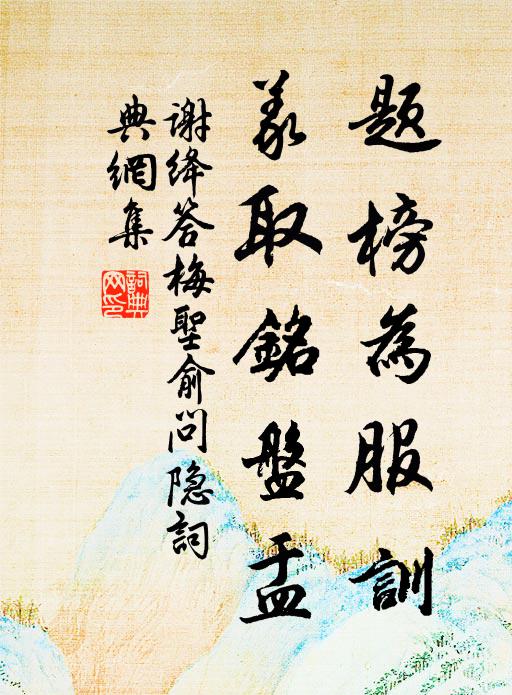 題榜為服訓
義取銘盤盂
谢绛答梅聖俞问隐詞
典網集
詞典網印